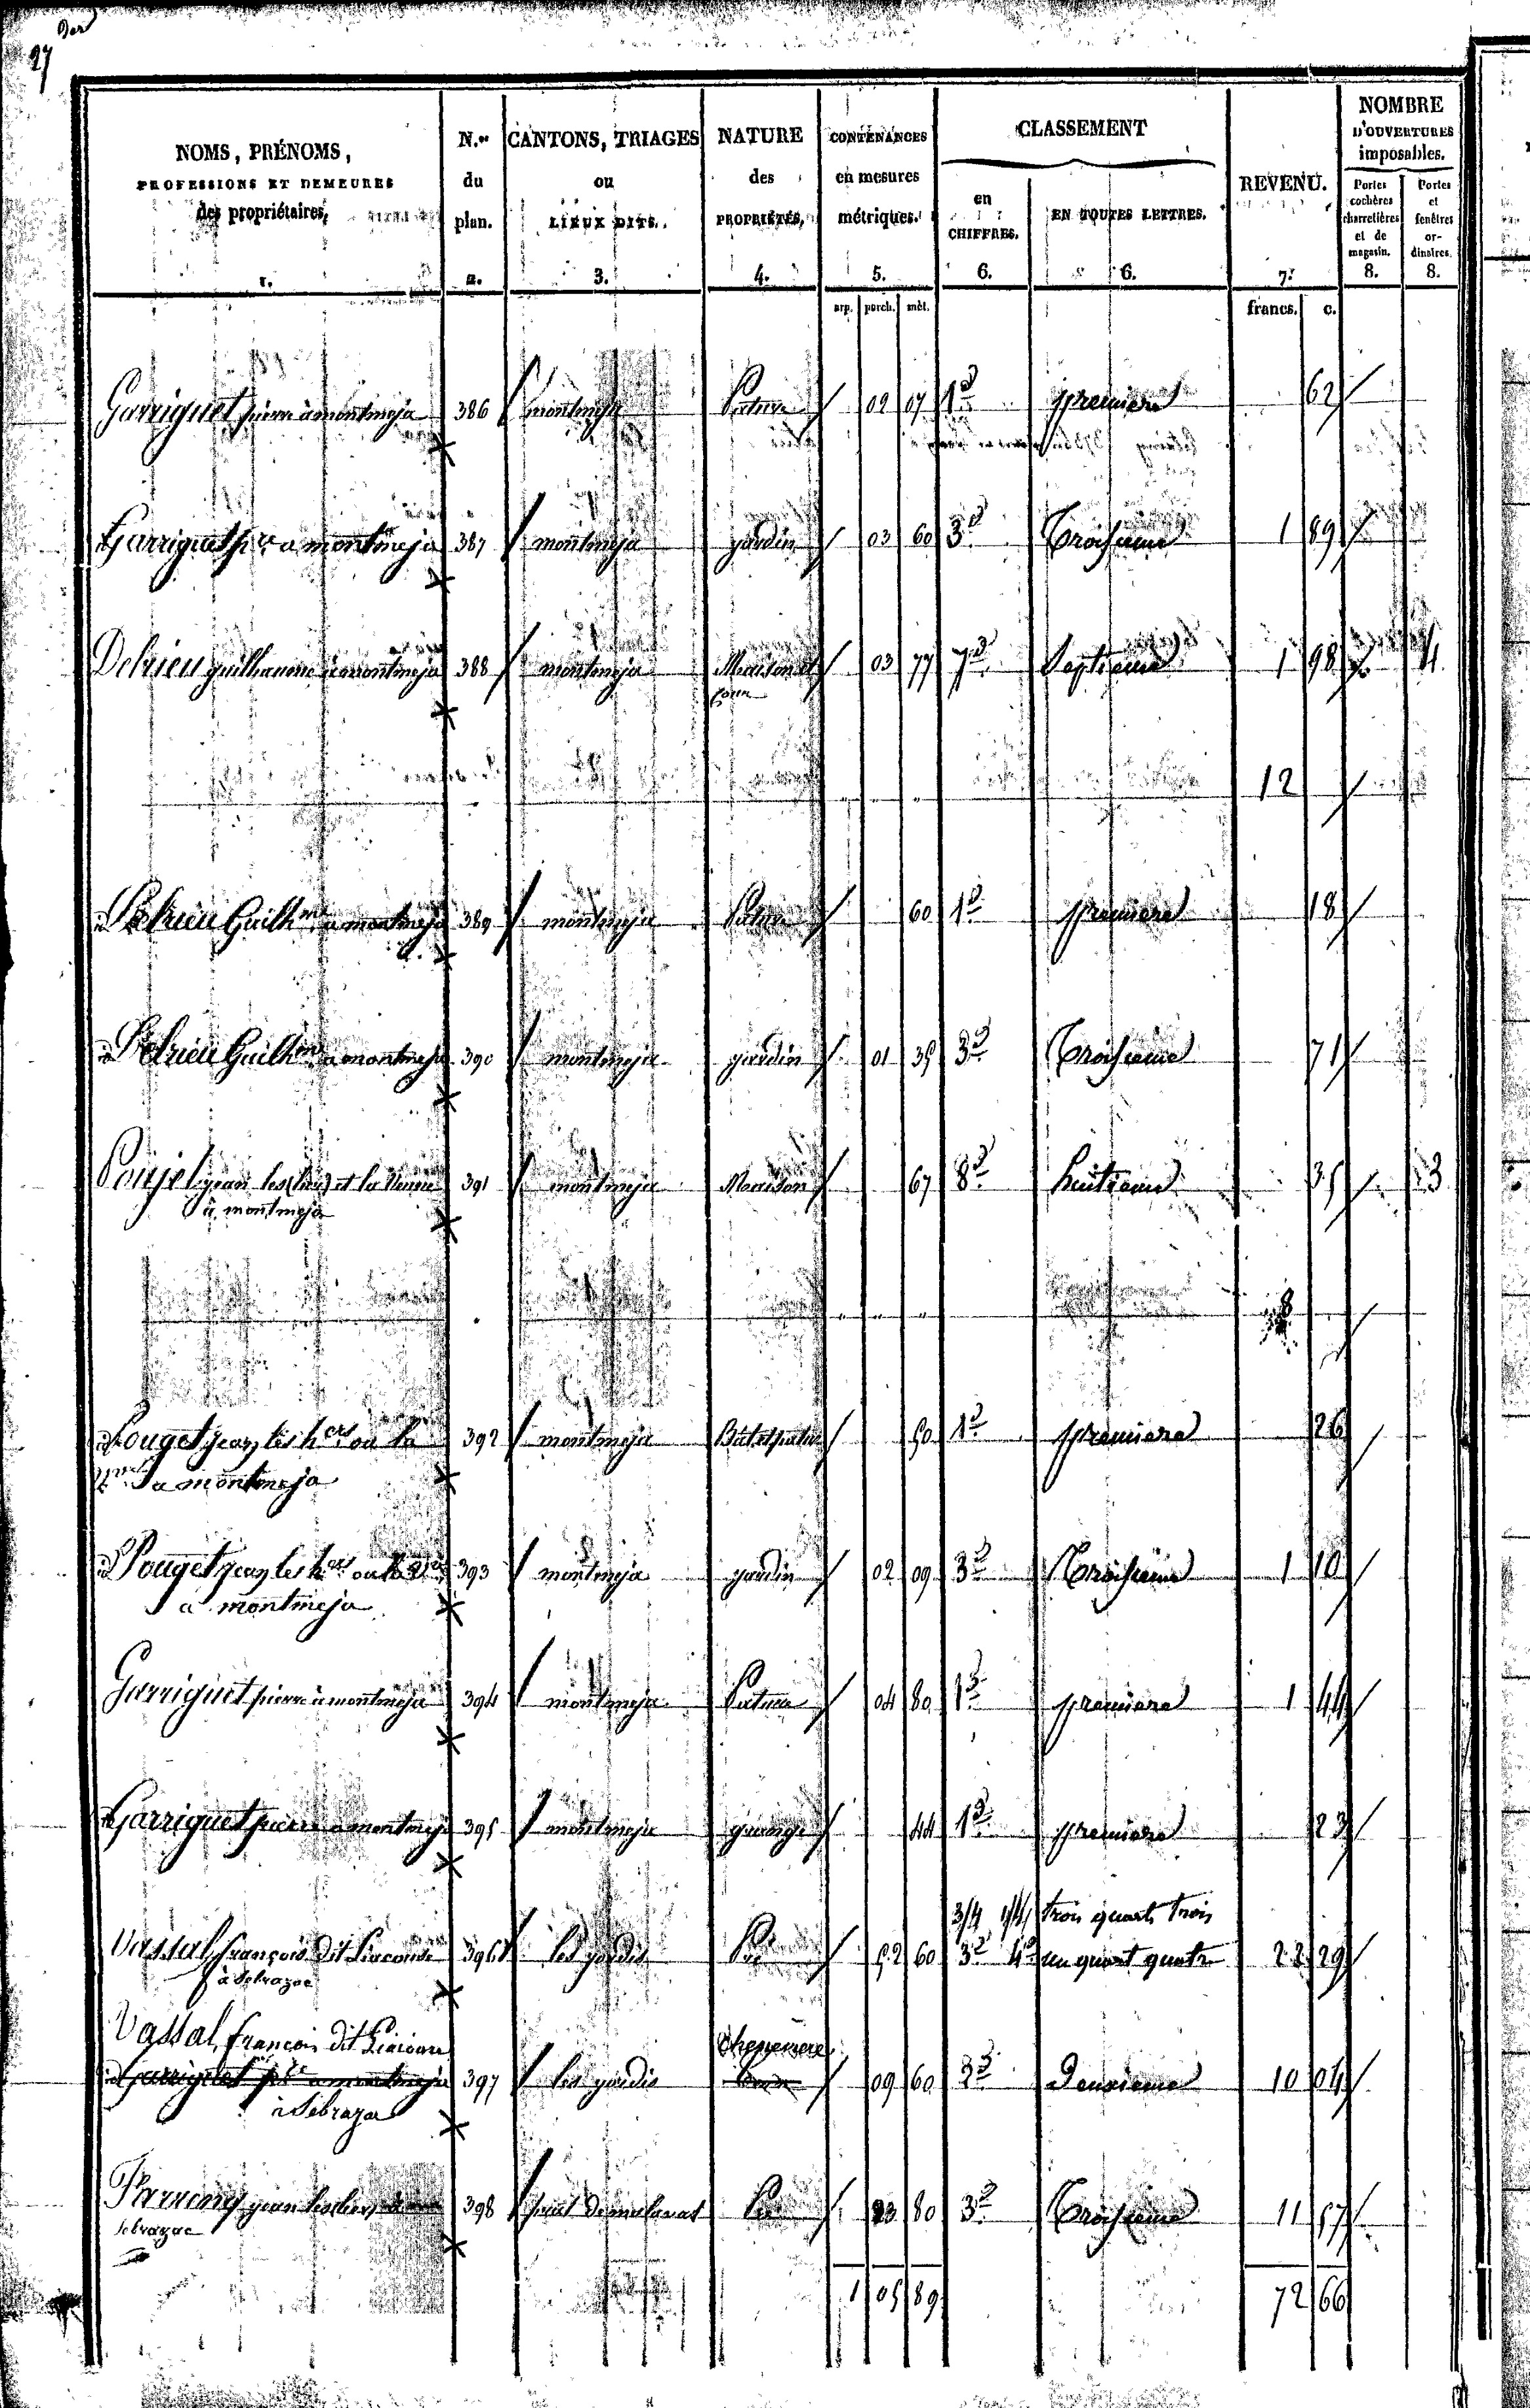 27
NOMS, PRÉNOMS, PROFESSIONS ET DEMEURES des propriétaires, 1.
N.os du plan. 2.
CANTONS, TRIAGES ou LIEUX DITS. 3.
NATURE des PROPRIÉTÉS, 4.
CONTENANCES en mesures métriques. 5.
CLASSEMENT
en CHIFFRES. 6.
EN TOUTES LETTRES. 6.
REVENU. 7.
NOMBRE D'OUVERTURES imposables.
Portes cochères charretières et de magasin. 8.
Portes et fenêtres ordinaires. 8.
arp. perch. mèt. francs. c.
Garriguet pierre à montmeja 386 montmeja Pature 02 07 1re premiere 62
Garriguet pre a montmeja 387 montmeja jardin 03 60 3e Troisieme 1 89
Delrieu guilhaume à montmeja 388 montmeja Maison et 03 77 7e Septieme 1 98 4
12
Delrieu Guilhme a montmeja 389 montmeja Pature 60 1e premiere 18
Delrieu Guilhme a montmeja 390 montmeja jardin 01 35 3e Troisieme 71
Poujet jean les hers et la 391 montmeja Maison 67 8e huitieme 35 3
à montmeja
8
Pouget jean les hers ou la 392 montmeja Bat et patus 50 1e premiere 26
a montmeja
Pouget jean les hers ou la 393 montmeja jardin 02 09 3e Troisieme 1 10
a montmeja
Garriguet pierre à montmeja 394 montmeja Pature 04 80 1e premiere 1 44
Garriguet pierre a montmeja 395 montmeja grange 44 1e premiere 23
3/4 1/4 trois quarts trois
Vassal, françois dit 396 les jardis Pré 52 60 3e 4e un quart quatre 22 29
à Sebrazac
Vassal, françois dit Chenevière
Garriguet pre a montmeja 397 les jardis 09 60 2e Deuxieme 10 04
à Sebrazac
jean les hers 398 Pré 23 80 3e Troisieme 11 57
sebrazac
1 05 89 72 66